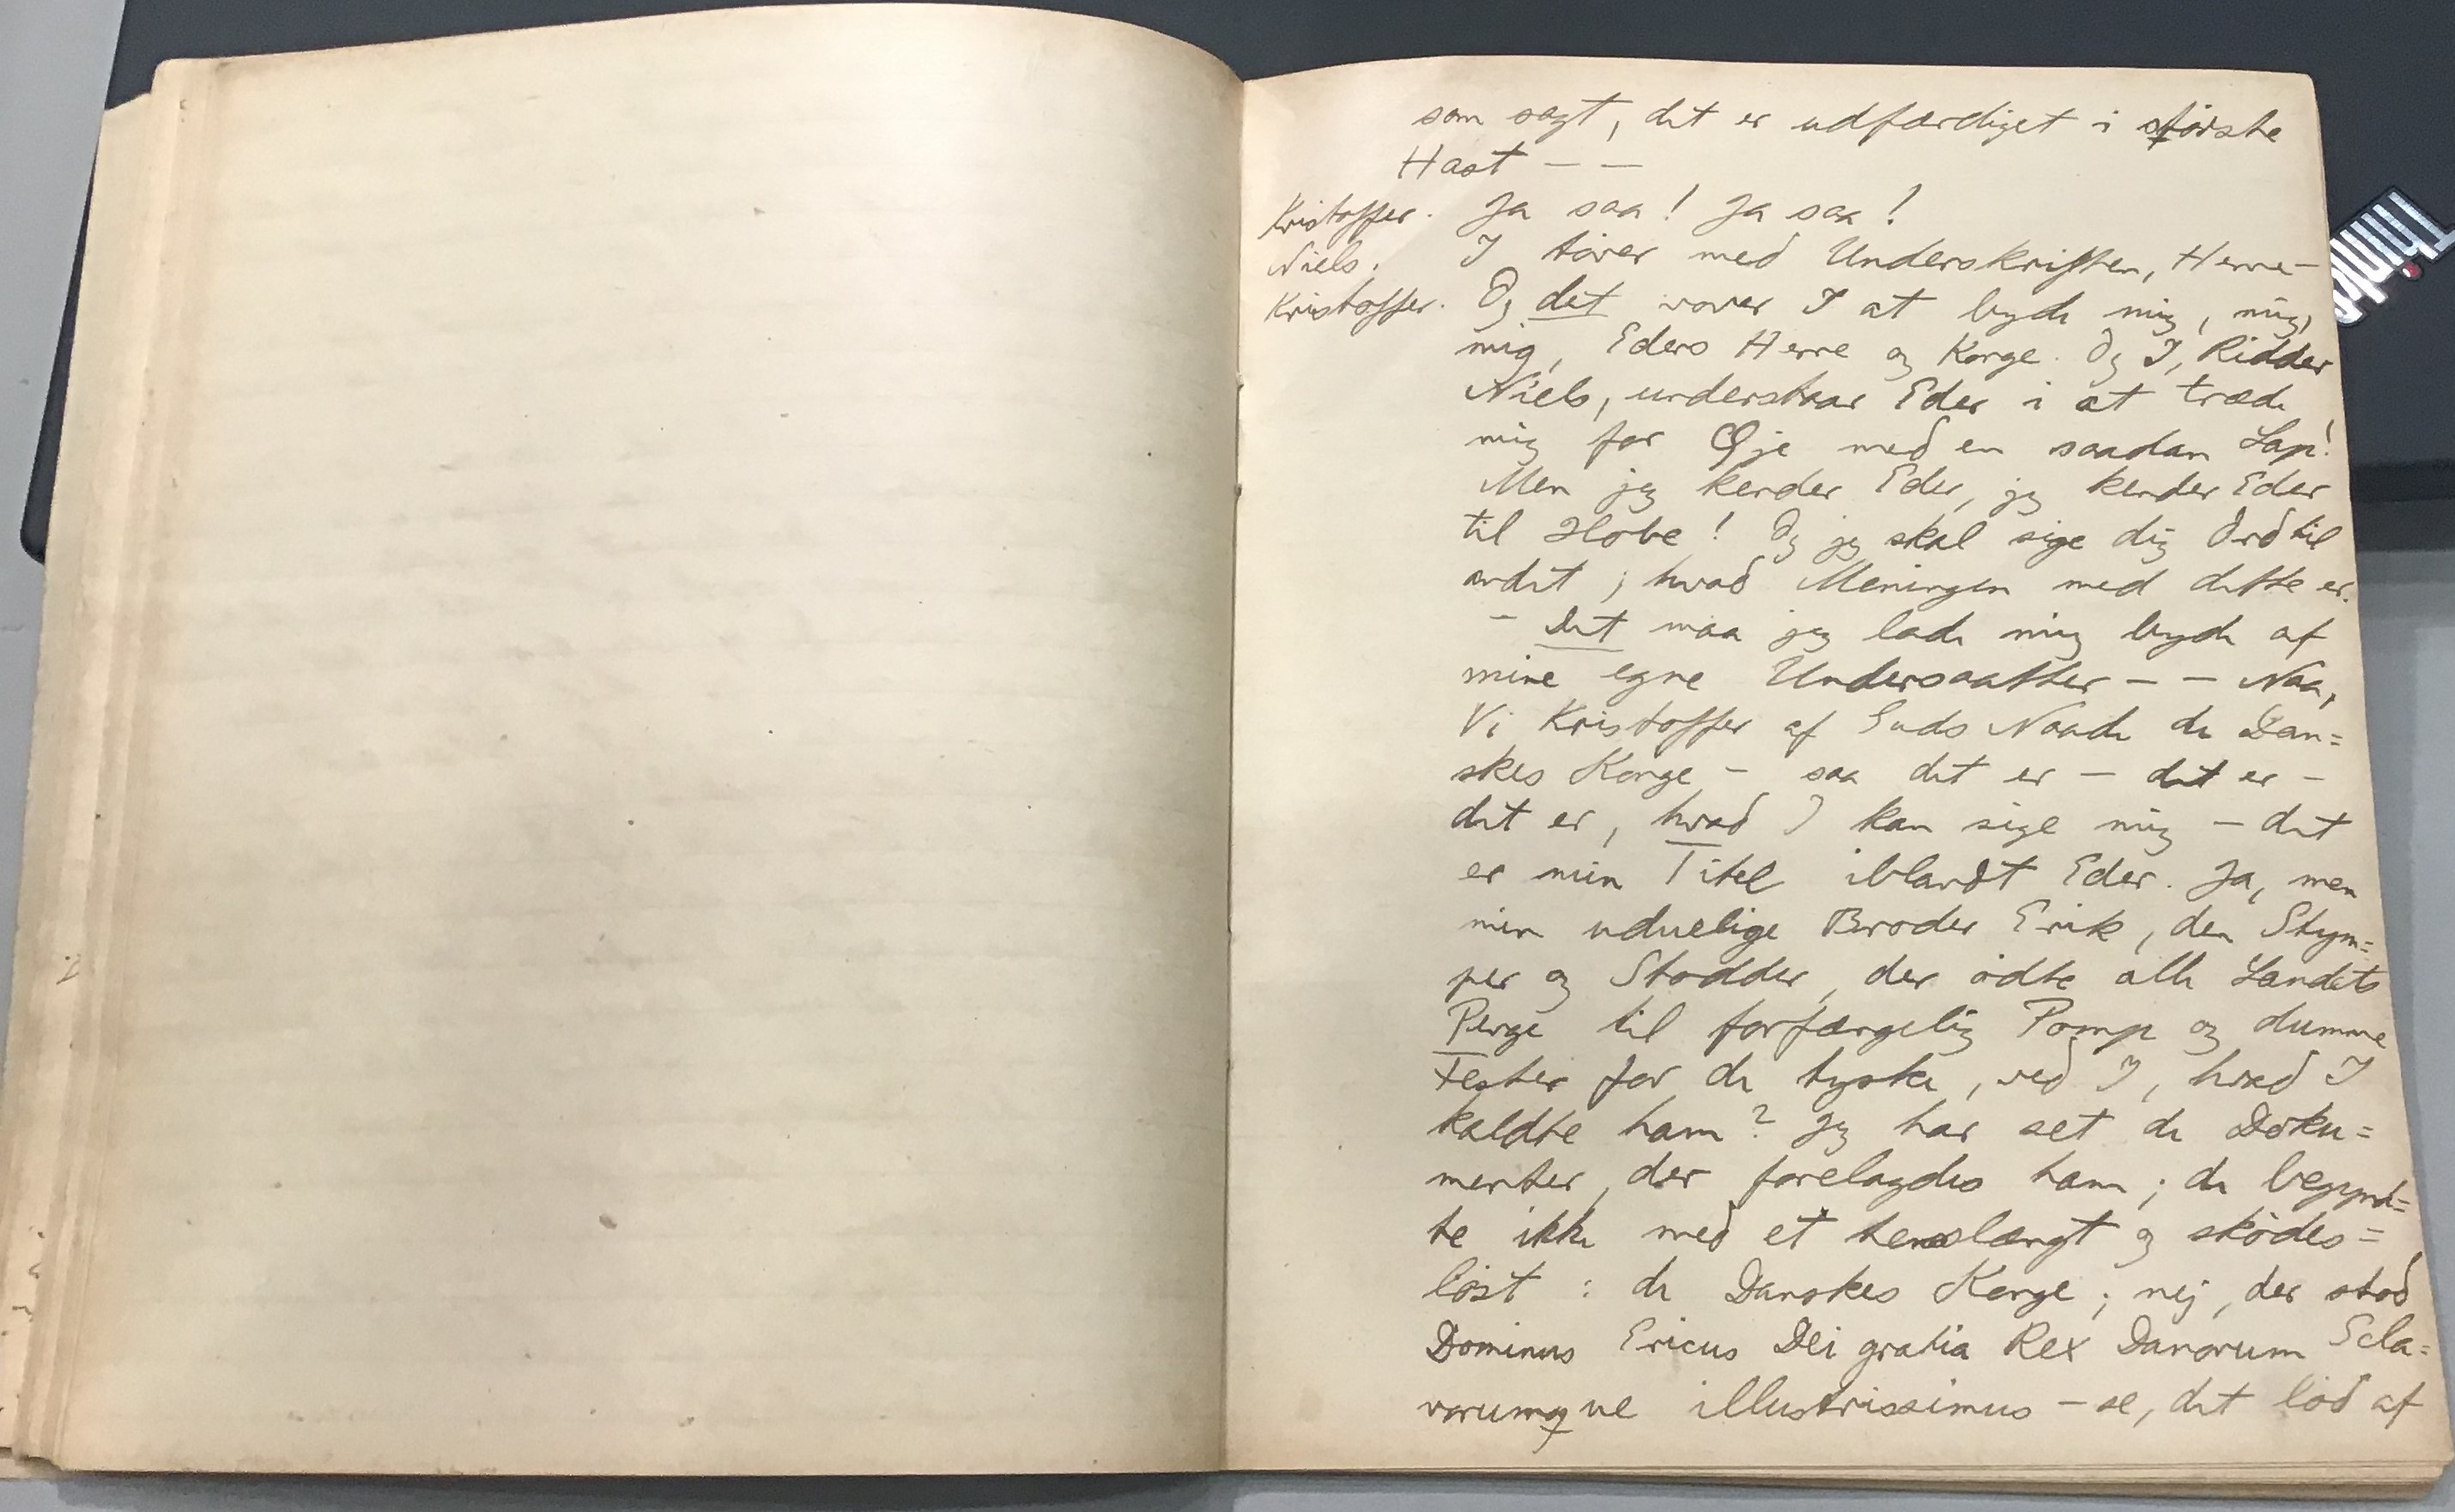 som sagt, det er udfærdiget i störste
Hast – –
Kristoffer. Ja saa! Ja saa!
Niels. I töver med Underskriften, Herre–
Kristoffer. Og det vover I at byde mig, mig,
mig, Eders Herre og Konge. Og I, Ridder
Niels, understaar Eder i at træde
mig for Øje med en saadan Lap!
Men jeg kender Eder, jeg kender Eder
til Hobe! Og jeg skal sige dig Ord til
andet, hvad Meningen med dette er.
– Det maa jeg lade mig byde af
mine egne Undersaatter – – Naa,
Vi Kristoffer af Guds Naade de Dan=
skes Konge – saa det er – det er –
det er, hvad I kan sige mig – det
er min Titel iblandt Eder. Ja, men
min uduelige Broder Erik, den Stym=
per og Stodder, der ödte alle Landets
Penge til forfængelig Pomp og dumme
Fester for de tyske, ved I, hvad I
kaldte ham? Jeg har set de Doku=
menter, der forelagdes ham; de begynd=
te ikke med et henslængt og sködes=
löst : de Danskes Konge; nej, der stod
Dominus Ericus Dei gratia Rex Danorum Scla=
vorumque illustrissimus – se, det löd af
Think